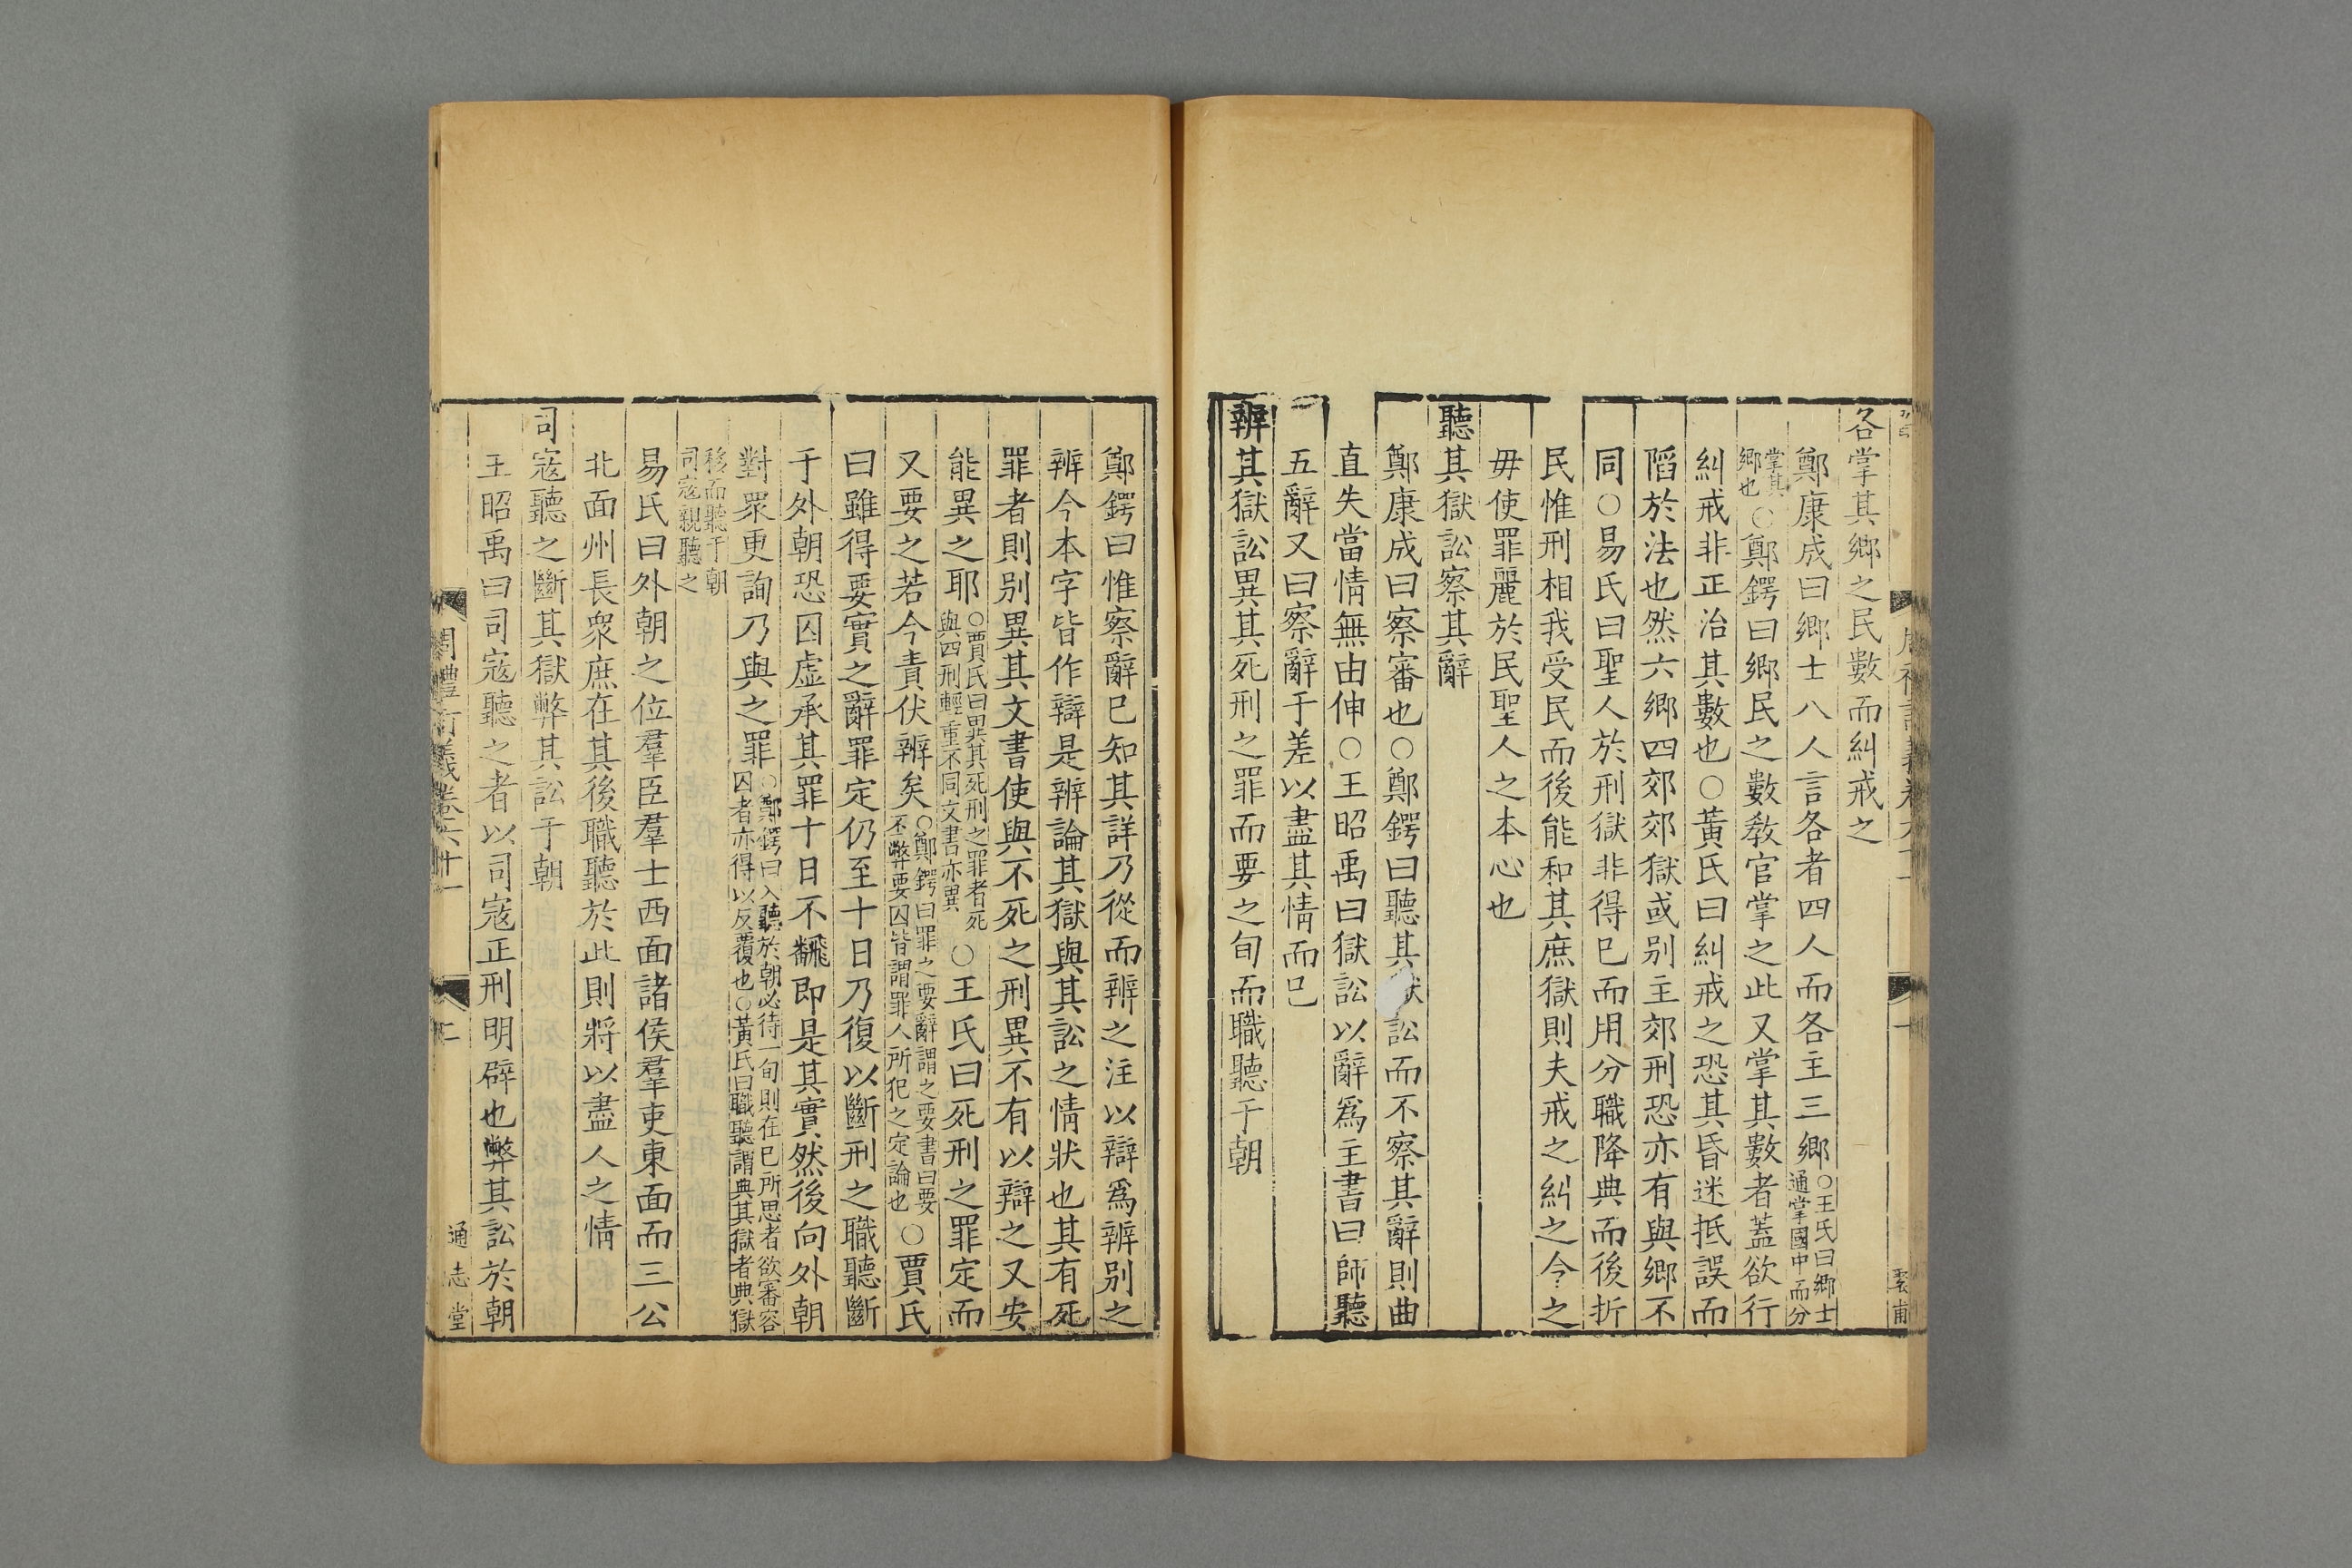 各掌其鄉之民數而糾戒之
鄭康成曰鄉士八人言各者四人而各主三鄉○王氏曰鄉士通掌國中而分
掌其鄉也○鄭鍔曰鄉民之數敎官掌之此又掌其數者蓋欲行
糾戒非正治其數也○黃氏曰糾戒之恐其昏迷抵誤而
陷於法也然六鄉四郊郊獄或别主郊刑恐亦有與鄉不
同○易氏曰聖人於刑獄非得已而用分職降典而後折
民惟刑相我受民而後能和其庶獄則夫戒之糾之令之
毋使罪麗於民聖人之本心也
聽其獄訟察其辭
鄭康成曰察審也○鄭鍔曰聽其訟而不察其辭則曲
直失當情無由伸○王昭禹曰獄訟以辭爲主書曰師聽
五辭又曰察辭于差以盡其情而已
辨其獄訟異其死刑之罪而要之旬而職聽于朝
鄭鍔曰惟察辭已知其詳乃從而辨之注以辯爲辨别之
辨今本字皆作辯是辨論其獄與其訟之情狀也其有死
罪者則别異其文書使與不死之刑異不有以辯之又安
能異之耶○賈氏曰異其死刑之罪者死與四刑輕重不同文書亦異○王氏曰死刑之罪定而
又要之若今責伏辨矣○鄭鍔曰罪之要辭謂之要書曰要丕蔽要囚皆謂罪人所犯之定論也○賈氏
曰雖得要實之辭罪定仍至十日乃復以斷刑之職聽斷
于外朝恐囚虛承其罪十日不翻即是其實然後向外朝
對眾更詢乃與之罪○鄭鍔曰入聽於朝必待一旬則在已所思者欲審容囚者亦得以反覆也○黃氏曰職聽謂典其獄者典獄
移而聽于朝司寇親聽之
易氏曰外朝之位羣臣羣士西面諸侯羣吏東面而三公
北面州長眾庶在其後職聽於此則將以盡人之情
司寇聽之斷其獄弊其訟于朝
王昭禹曰司寇聽之者以司寇正刑明辟也弊其訟於朝
周禮訂義卷六十一
二
通志堂